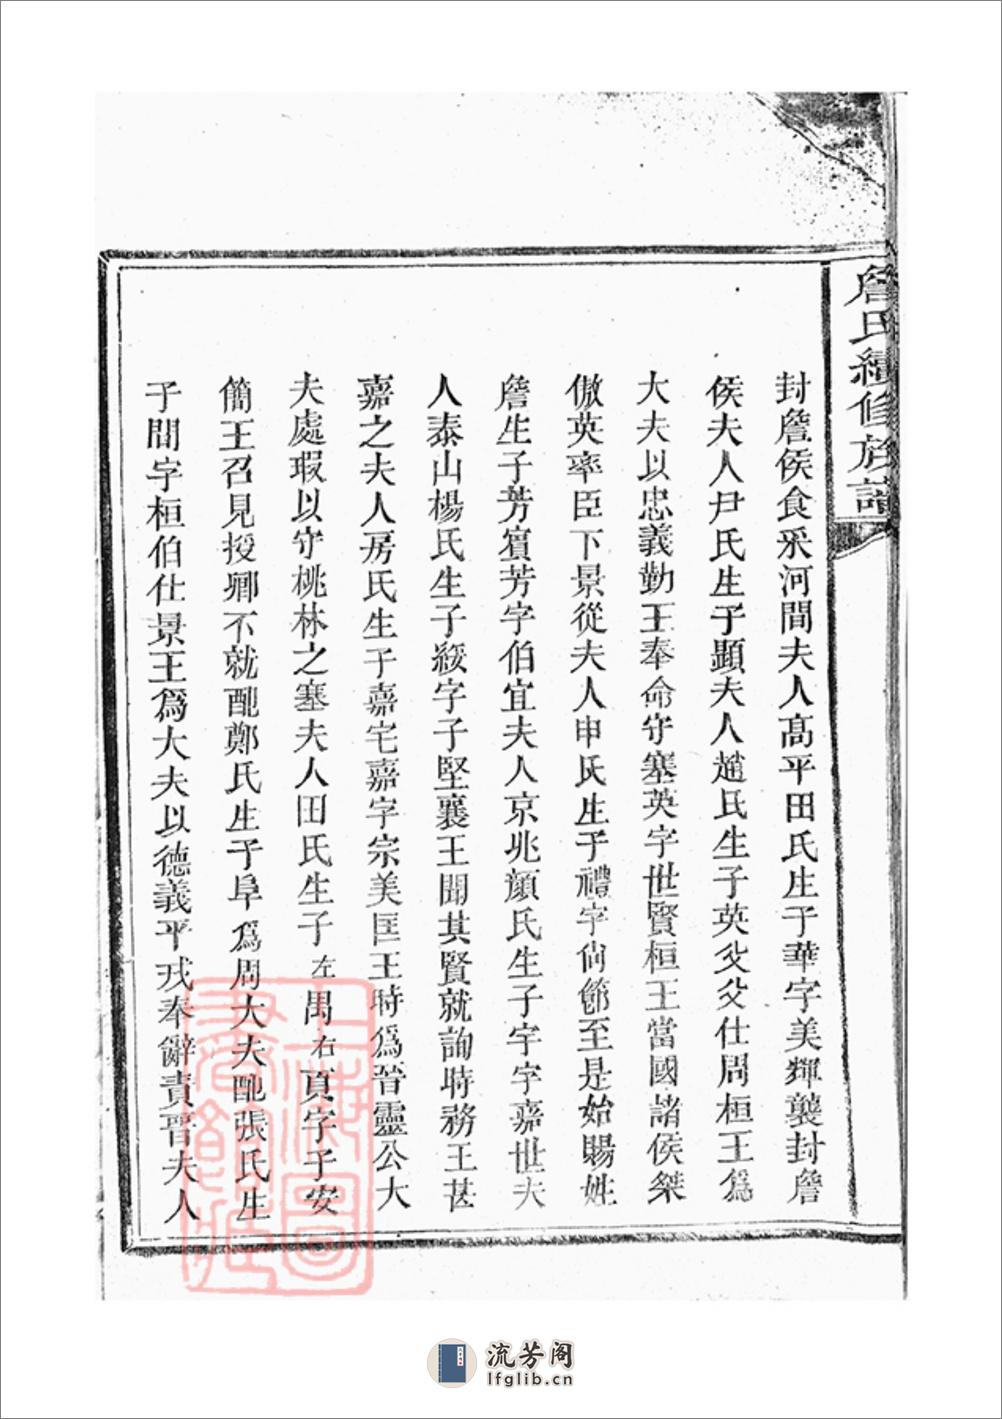 詹氏續修族譜
封詹侯食采河間夫人高平田氏生子華字美輝襲封詹
侯夫人尹氏生子顯夫人趙氏生子英父父仕周桓王爲
大夫以忠義勤王奉命守塞英字世賢桓王當國諸侯桀
傲英率臣下景從夫人申氏生子禮字尙節至是始賜姓
詹生子芳賓芳字伯宜夫人京兆顔氏生子宇字嘉世夫
人泰山楊氏生子綬字子堅襄王聞其賢就詢時務王甚
嘉之夫人房氏生子嘉宅嘉字宗美匡王時爲晉靈公大
夫處瑕以守桃林之塞夫人田氏生子左禺右頁字子安
簡王召見授卿不就配鄭氏生子阜爲周大夫配張氏生
子間字桓伯仕景王爲大夫以德義平戎奉辭責晉夫人
上海圖書館藏
流芳阁
lfglib.cn